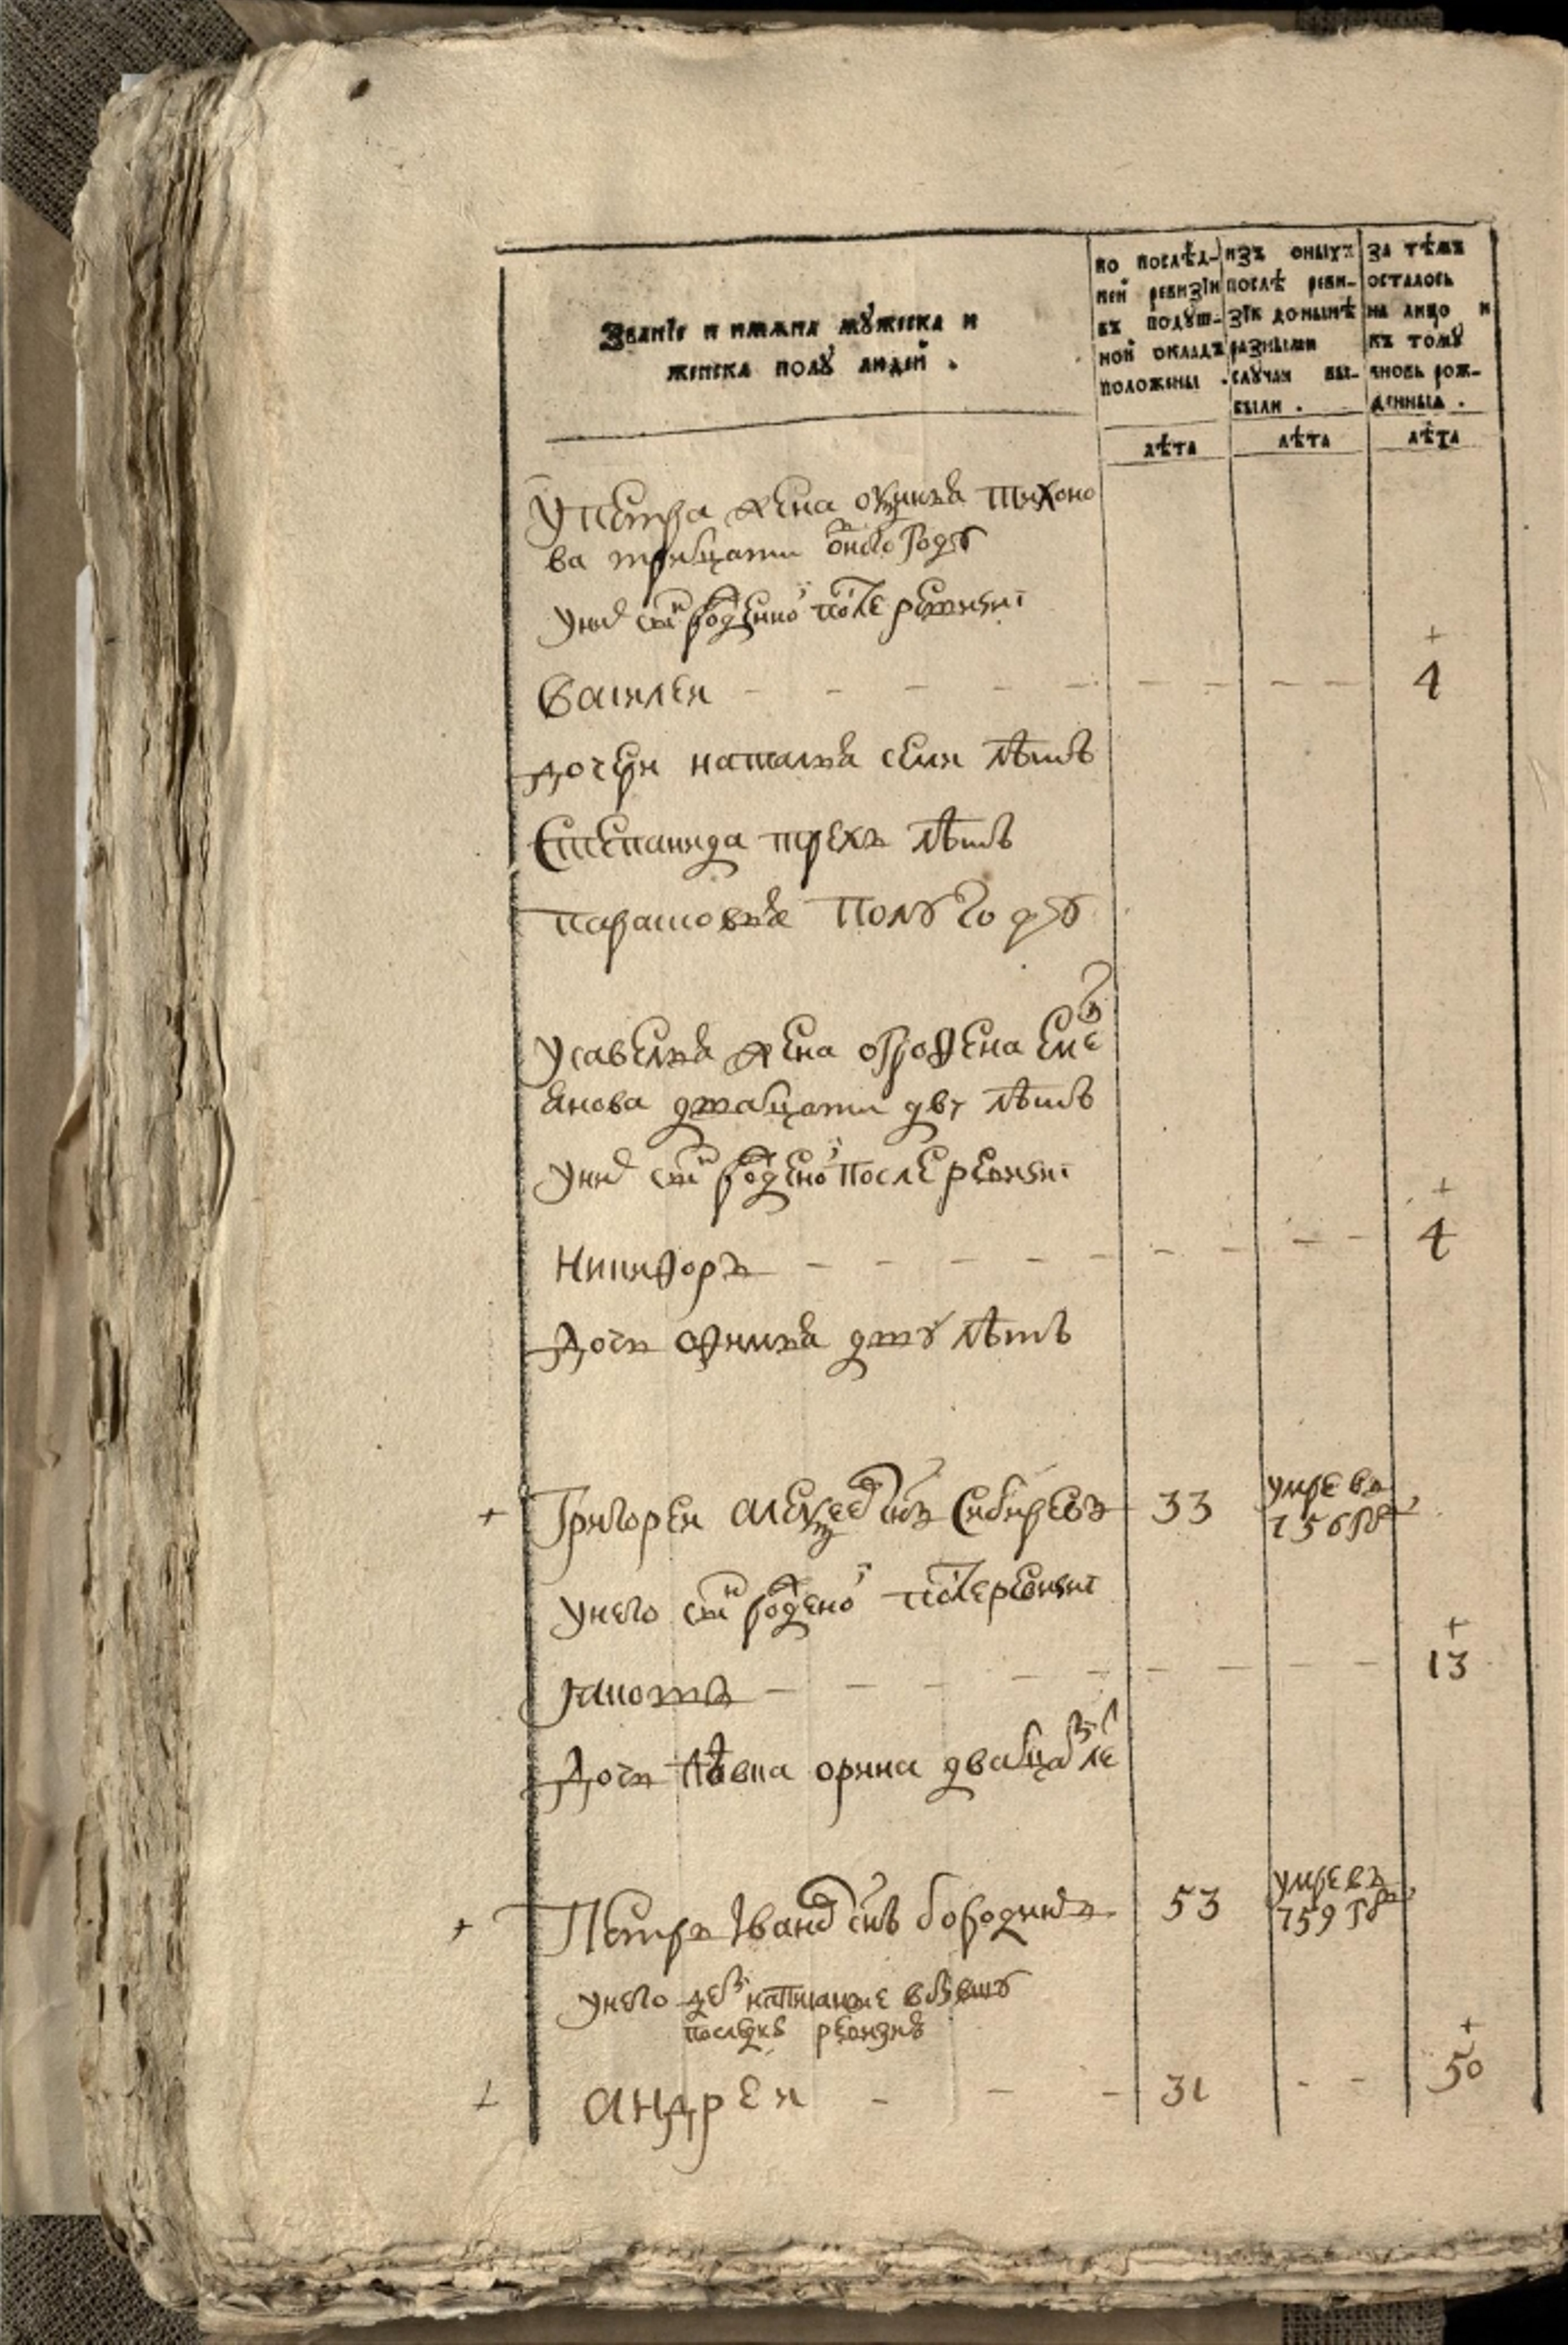 Званїе и имѧна мꙋжеска и
женска полꙋ людей .
по послѣд-
ней ревизїи
въ подꙋш-
ной окладъ
положены .
изъ оныхъ
послѣ реви-
зїи донынѣ
разными
слꙋчаи вы-
были .
за тѣмъ
осталось
на лицо и
къ томꙋ
вновь рож-
денныѧ .
лѣта
лѣта
лѣта
у петра жена Тихоно
ва тритцати году
у них сын рожденной после ревизиi
Василеи 4
дочери наталья семи лѣтъ
Степанида трехъ лѣтъ
парасковья Полу году
у савелья жена Еме
янова дватцати дву лѣтъ
у них сын рожденой после ревизиi
Никифоръ 4
дочь дву лѣтъ
Григореи Алексеевъ снъ Сибиревъ 33 умре въ
756 го
у него сын рожденой после ревизиi
13
дочь дѣвка орина дватцати лет
Петръ Iвановъ снъ бородинъ 53 умре въ
759 го
у него дети написанные в бывшую
послѣ ревизию
андреи 31 50